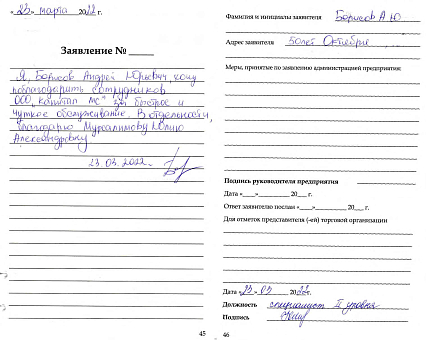 « 23 » марта 2022 г.
Заявление №
Я, Борисов Андрей Юрьевич, хочу
поблагодарить сотрудников
ООО, капитал мс" за быстрое и
чуткое обслуживание. В отдельности,
благодарю Мурсалимову Юлию
Александровну.
23.03.2022
45
Фамилия и инициалы заявителя Борисов А Ю
Адрес заявителя 50 лет Октября
Меры, принятые по заявлению администрацией предприятия:
Подпись руководителя предприятия
Дата «___»________ 20___ г.
Ответ заявителю послан «___»________ 20___ г.
Для отметок представителя (-ей) торговой организации
Дата « 23 » 03 2022г.
Должность специалист II уровня
Подпись
46